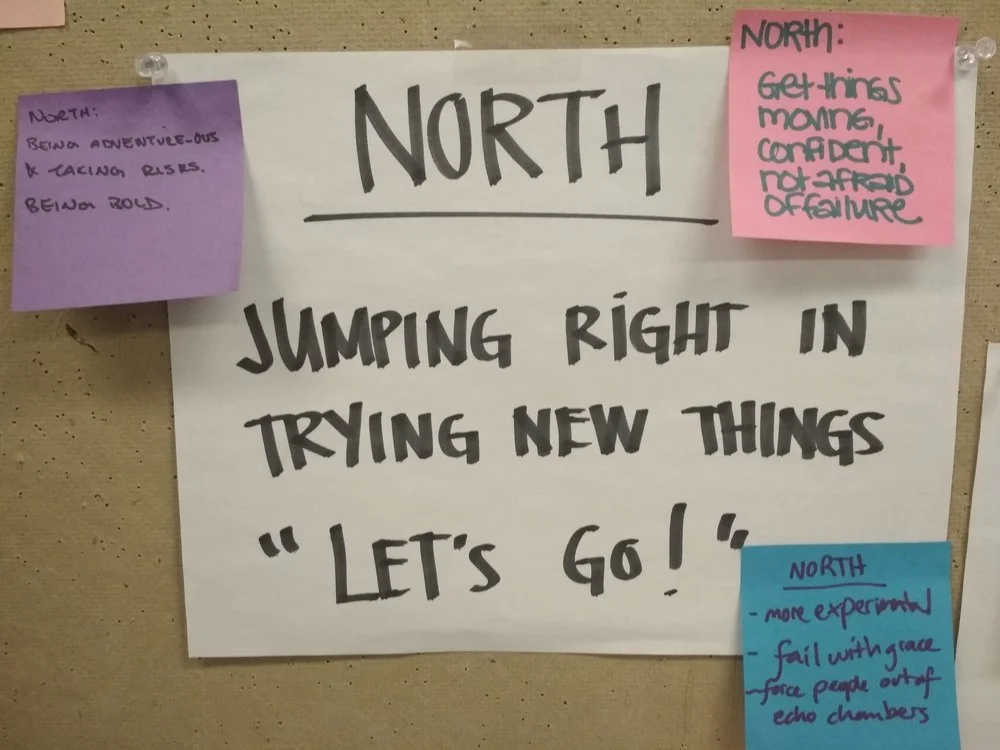 NORTH
JUMPING RIGHT IN
TRYING NEW THINGS
"LET'S GO!"
NORTH:
BEING ADVENTURE-OUS
& TAKING RISKS.
BEING BOLD.
NORTH:
Get things
moving,
confident,
not afraid
of failure
NORTH
- more experimental
- fail with grace
- force people out of
echo chambers